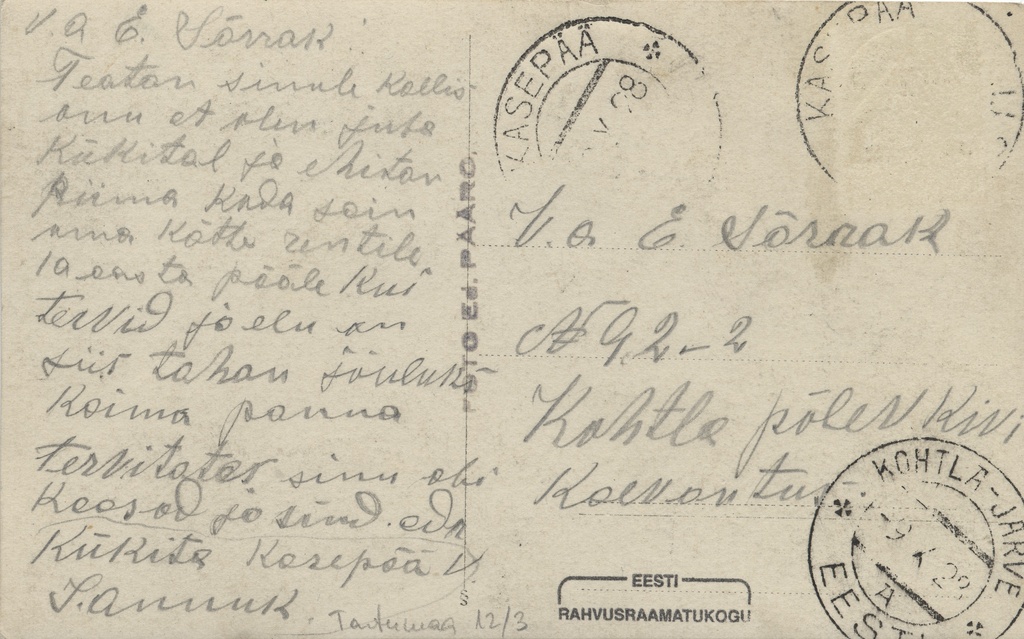 V. a E. Sõrrak
Teatan sinule Kallis
onu et olen juba
Kükital ja ehitan
Piima Koda sain
oma Kätte rentele
10 aasta pääle Kui
tervid ja elu on
siis tahan jõuluks
Koima panna
tervitates sinu
ja sind.
Kükita Kasepää
J. Annuk.
Tartumaa 12/3
FOTO Ed. PÄÄRO.
KASEPÄÄ
X 28
KASEPÄÄ
V. a E. Sõrrak
№ 92-2
Kohtla põlev Kivi
Kaevantus
KOHTLA-JÄRVE
-9 X 28
A
EESTI
EESTI
RAHVUSRAAMATUKOGU